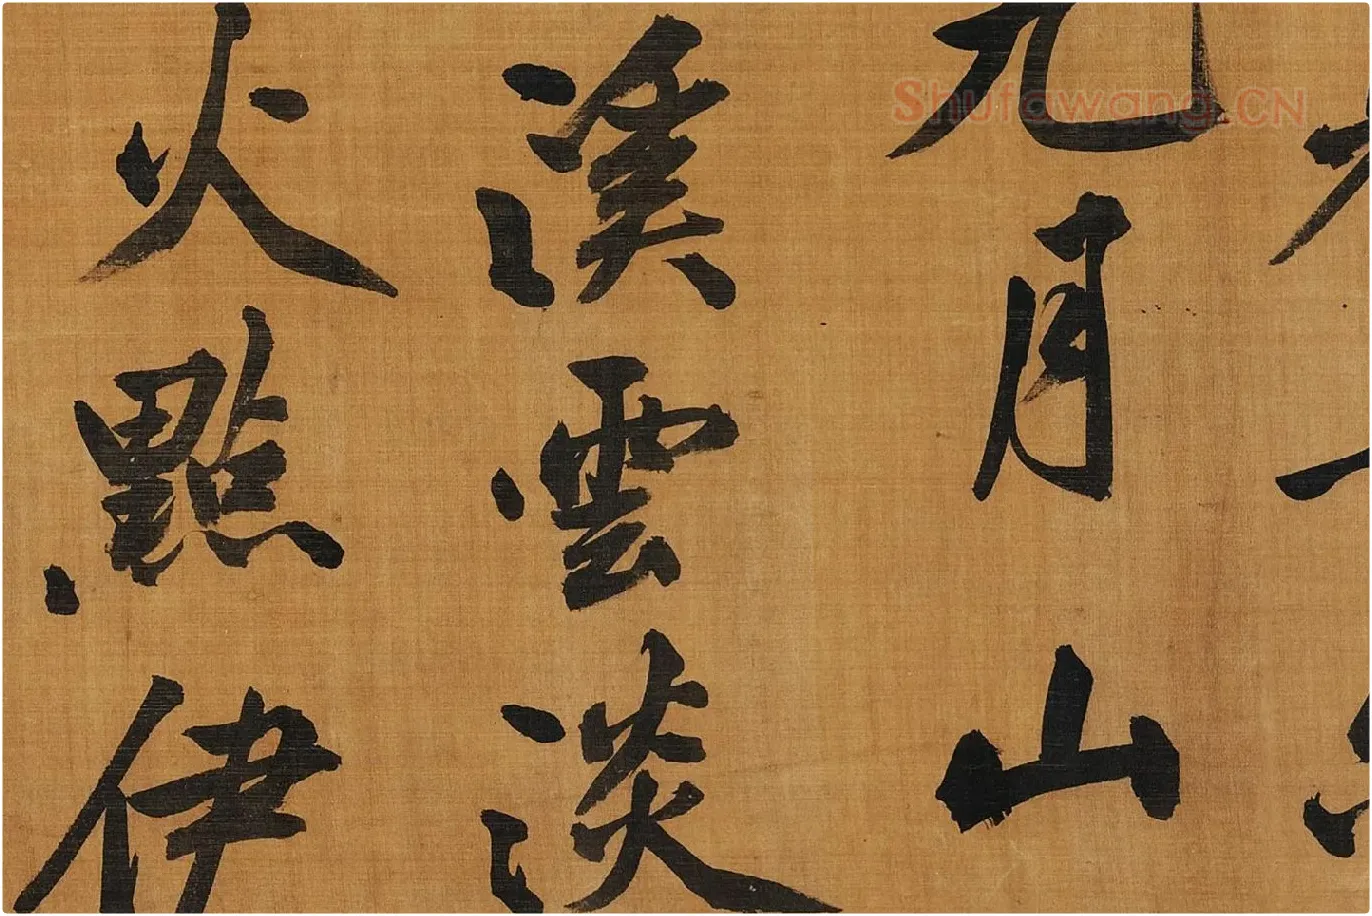 九月山
溪雲淡
火點伊
Shufawang.CN